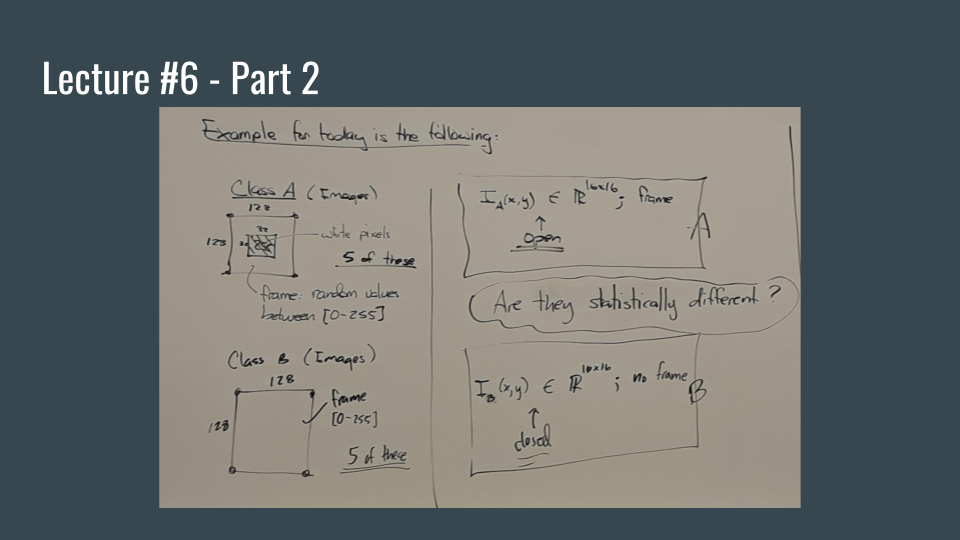 Lecture #6 - Part 2
Example for today is the following:
Class A (Images)
128
128
32
255
white pixels
5 of these
frame: random values
between [0-255]
Class B (Images)
128
128
frame
[0-255]
5 of these
I_A(x,y) ∈ ℝ^16x16; frame
↑
open
A
Are they statistically different?
I_B(x,y) ∈ ℝ^16x16; no frame
B
↑
closed